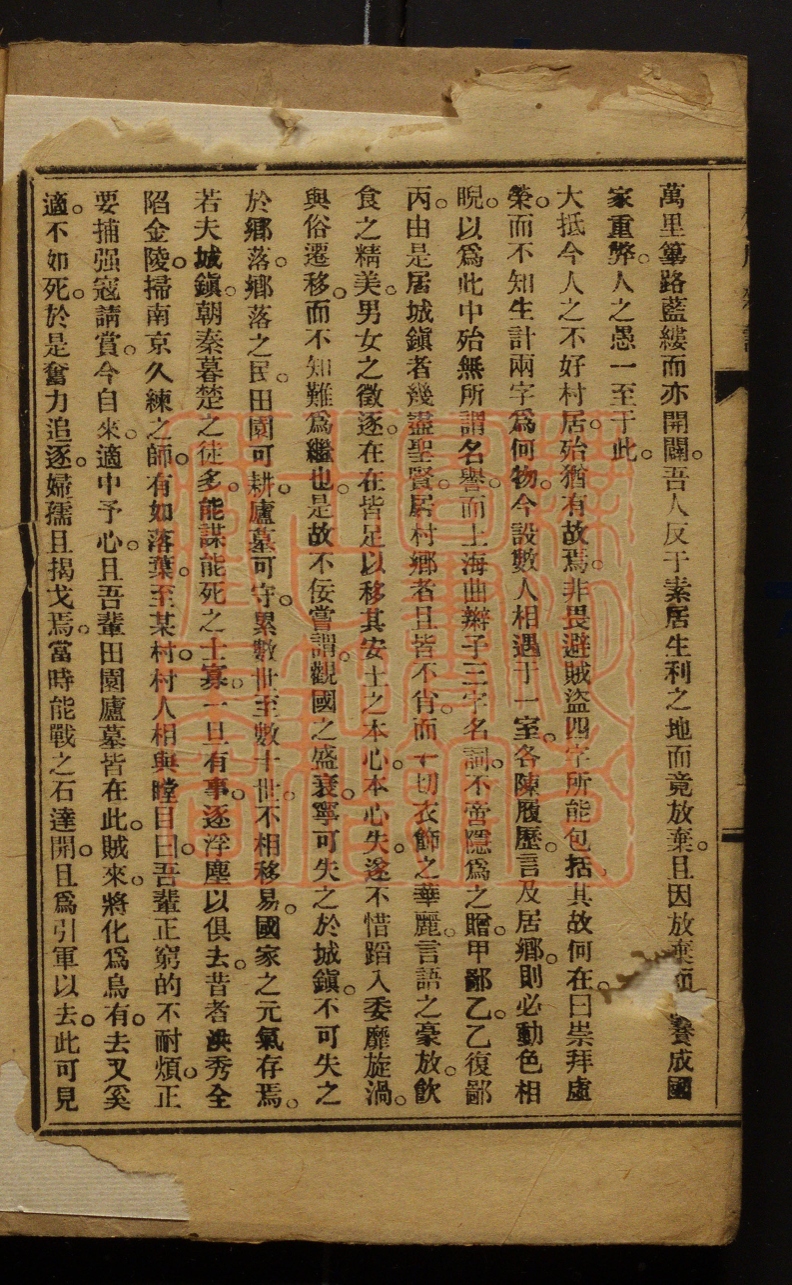 萬里篳路藍縷而亦開闢。吾人反于素居生利之地而竟放棄。且因放棄 養成國
家重弊。人之愚一至于此。
大抵今人之不好村居。殆猶有故焉。非畏避賊盜四字所能包括。其故何在。曰崇拜虛
榮。而不知生計兩字爲何物。今設數人相遇于一室。各陳履歷。言及居鄉。則必動色相
睨。以爲此中殆無所謂名譽。而上海曲辮子三字名詞。不啻隱爲之贈。甲鄙乙。乙復鄙
丙。由是居城鎭者幾盡聖賢。居村鄉者且皆不肯。而一切衣飾之華麗。言語之豪放。飲
食之精美。男女之徵逐。在在皆足以移其安土之本心。本心失。遂不惜蹈入委靡旋渦。
與俗遷移。而不知難爲繼也。是故不佞嘗謂。觀國之盛衰。寧可失之於城鎭。不可失之
於鄉落。鄉落之民。田園可耕。廬墓可守。累數世至數十世。不相移易。國家之元氣存焉。
若夫城鎭。朝秦暮楚之徒多。能謀能死之士寡。一旦有事。逐浮塵以俱去。昔者洪秀全
陷金陵。掃南京久練之師。有如落葉。至某村。村人相與瞠目曰。吾輩正窮的不耐煩。正
要捕强寇請賞。今自來。適中予心。且吾輩田園廬墓皆在此。賊來。將化爲烏有。去又奚
適。不如死。於是奮力追逐。婦孺且揭戈焉。當時能戰之石達開。且爲引軍以去。此可見